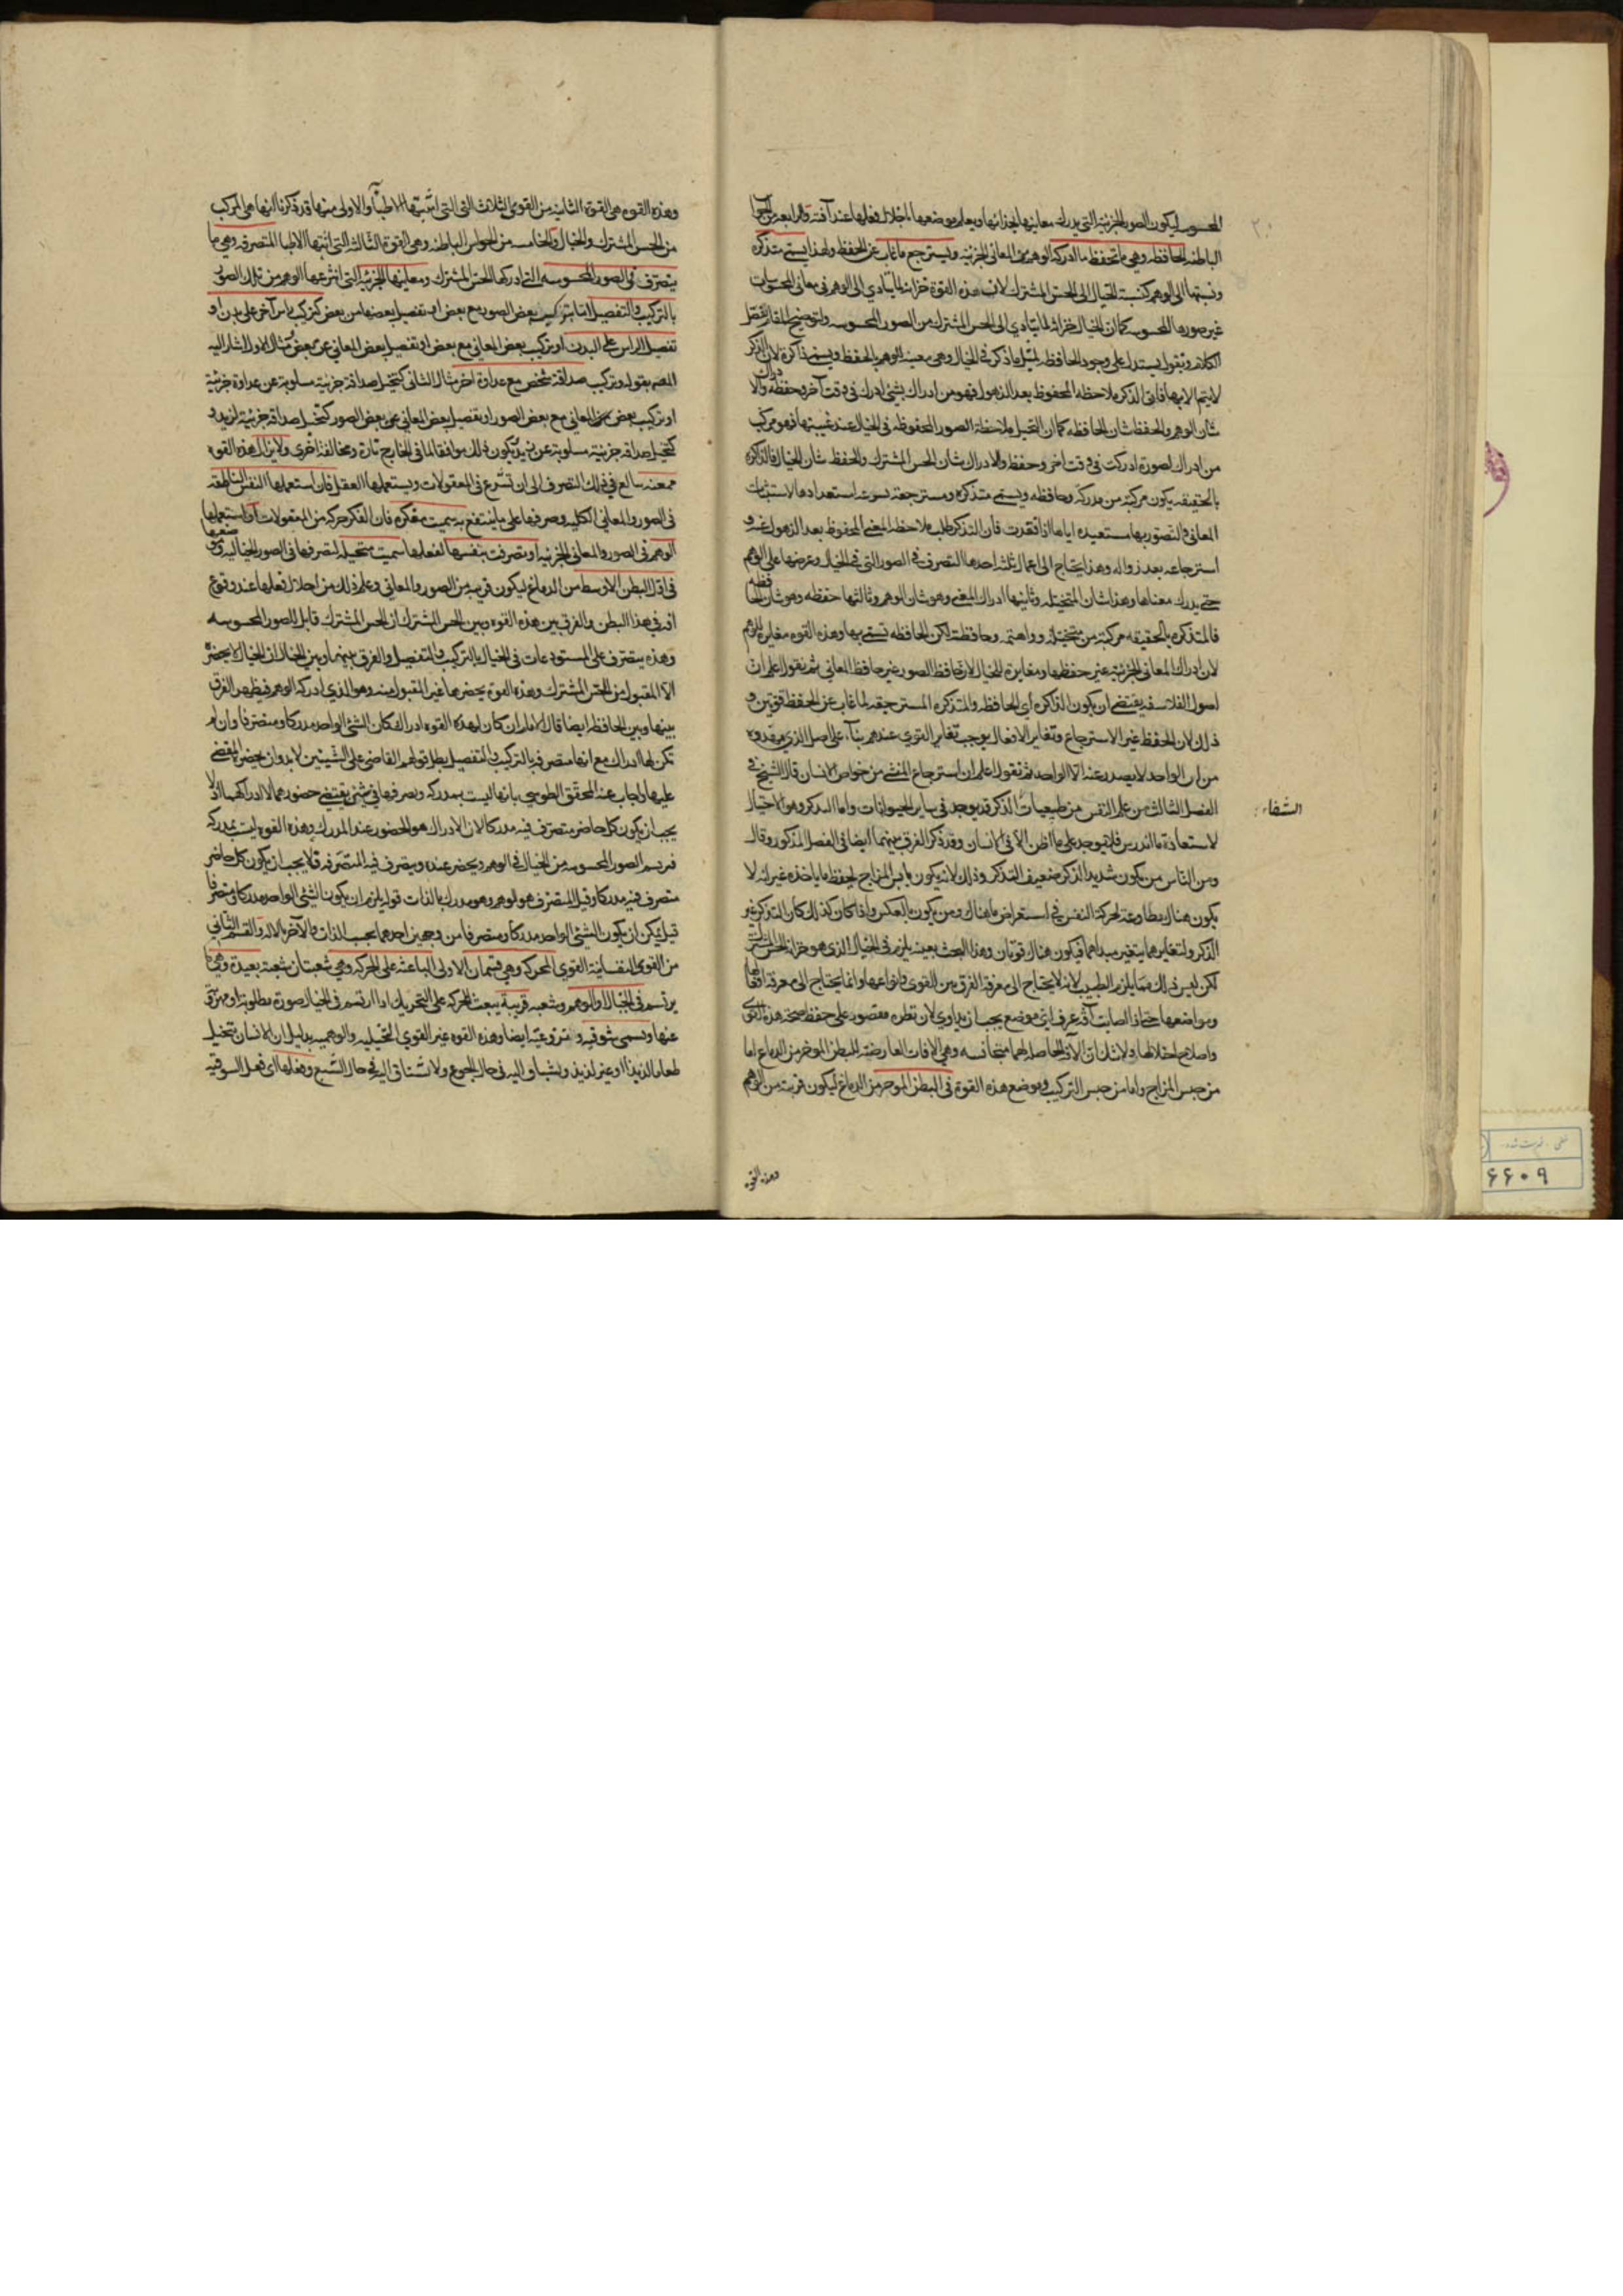 المحسوسه ليكون الصور الجزئية التي يدرك معانيها بحذائها ويعلم موضعها باختلال فعلها عند آفته والرابعة من الحواس
الباطنه الحافظه وهي ما تحفظ ما ادركه الوهم من المعاني الجزئيه ويسترجع ما غاب عن الحفظ ولهذا يسمى متذكره
ونسبتها الى الوهم كنسبة الخيال الى الحس المشترك لان هذه القوة خزانة لما يتأدي الى الوهم من معاني المحسوسات
غير صورها المحسوسه كما ان الخيال خزانة لما يتأدي الى الحس المشترك من الصور المحسوسه ولتوضيح المقام نفصل
الكلام ونقول يستدل على وجود الحافظه بمثل ما ذكر في الخيال وهي معينة الوهم بالحفظ ويسمى ذاكرة لان الذكر
لا يتم الا بها فان الذكر ملاحظه المحفوظ بعد الذهول فهو من ادراك بشئ ادرك في وقت آخر وحفظه والادراك
شان الوهم والحفظ شان الحافظه كما ان التخيل ملاحظة الصور المحفوظه في الخيال عند غيبتها فهو مركب
من ادراك لصورة ادركت في وقت اخر وحفظ والادراك شان الحس المشترك والحفظ شان الخيال فالذاكره
بالحقيقه يكون مركبة من مدركه وحافظه ويسمى متذكره ومسترجعة لسرعة استعدادها لاستثبات
المعاني والتصور بها مستعيده اياها اذا فقدت فان التذكر طلب ملاحظه المعنى المحفوظ بعد الذهول عنه و
استرجاعه بعد زواله وهذا يحتاج الى اعمال ثلثه احدها التصرف في الصور التي في الخيال وعرضها على الوهم
حتى يدرك معناها وهذا شان المتخيله وثانيها ادراك المعنى وهو شان الوهم وثالثها حفظه وهو شان الحافظه
فالمتذكره بالحقيقه مركبة من متخيلة وواهمة وحافظة لكن الحافظه تسمى بها وهذه القوه مغايرة للوهم
لان ادراك المعاني الجزئية غير حفظها ومغايرة للخيال لان حافظ الصور غير حافظ المعاني ثم نقول اعلم ان
اصول الفلاسفه يقتضي ان يكون الذاكره أي الحافظه والمتذكره المسترجعه لما غاب عن الحفظ قوتين و
ذلك لان الحفظ غير الاسترجاع وتغاير الافعال يوجب تغاير القوى عندهم بناء على اصل الذي مهدوه
من ان الواحد لا يصدر عنه الا الواحد ثم نقول اعلم ان استرجاع المنسي من خواص الانسان قال الشيخ في
الفصل الثالث من علم النفس من طبيعيات الذكر قد يوجد في ساير الحيوانات واما التذكر وهو الاحتيال
الشفاء
لاستعادة ما اندرس فلا يوجد على ما اظن الا في الانسان وقد ذكر الفرق بينهما ايضا في الفصل المذكور وقال
ومن الناس من يكون شديد الذكر ضعيف التذكر وذلك لانه يكون يابس المزاج يحفظ ما ياخذه غير انه لا
يكون هناك مطاوعة لحركة النفس في استعراض ما هناك ومن يكون بالعكس واذا كان كذلك كان التذكر غير
الذكر ولتغايرهما يتغير مبداهما فيكون هناك قوتان وهذا البحث بعينه يلزم في الخيال الذي هو خزانة الحس المشترك
لكن ليس ذلك مما يلزم الطبيب لانه لا يحتاج الى معرفة الفرق بين القوى وانواعها وانما يحتاج الى معرفة افعالها
ومواضعها حتى اذا اصابت آفة عرف اي موضع يجب ان يداوي لان نظره مقصور على حفظ صحة هذه القوى
واصلاح اختلالها ولا شك ان الآفة الحاصله لهما متجانسه وهي الافات العارضة للبطن الموخر من الدماغ اما
من جنس المزاج واما من جنس التركيب وموضع هذه القوة في البطن الموخر من الدماغ ليكون قريبة من الوهم
وهذه القوه
وهذه القوه هي القوة الثانيه من القوى الثلاث التي اثبتها الاطباء والاولى منها قد ذكرنا انها هي المركب
من الحس المشترك والخيال والخامسه من الحواس الباطنه وهي القوة الثالثه التي اثبتها الاطبا المتصرفه وهي ما
يتصرف في الصور المحسوسه التي ادركها الحس المشترك ومعانيها الجزئية التي انتزعها الوهم من تلك الصور
بالتركيب والتفصيل اما بتركيب بعض الصور مع بعض او تفصيل بعضها من بعض كتركيب راس آخر على بدن او
تفصيل الراس على البدن او تركيب بعض المعاني مع بعض او تفصيل بعض المعاني عن بعض مثال الاول اشار اليه
المص بقوله وتركيب صداقة شخص مع عداوة اخر مثال الثاني كتخيل صداقة جزئية مسلوبة عن عداوة جزئية
او تركيب بعض المعاني مع بعض الصور او تفصيل بعض المعاني عن بعض الصور كتخيل صداقة جزئية لزيد و
كتخيل صداقة جزئية مسلوبة عن زيد تكون ذلك موافقا لما في الخارج تارة ومخالفة اخرى ولا يزال هذه القوه
في ذلك التصرف الى ان تشرع في المعقولات ويستعملها العقل فان استعملها النفس الناطقه
في الصور والمعاني الكليه وصرفها على ما ينتفع به سميت مفكره فان الفكر حركه من المعقولات او استعملها
الوهم في الصور والمعاني الجزئيه او تصرفت بنفسها لفعلها سميت متخيلة لتصرفها في الصور الخياليه وموضعها
في اول البطن الاوسط من الدماغ ليكون قريبه من الصور والمعاني وعلم ذلك من اختلال فعلها عند وقوع
افه في هذا البطن والفرق بين هذه القوه وبين الحس المشترك ان الحس المشترك قابل للصور المحسوسه
وهذه يتصرف على المستودعات في الخيال بالتركيب والتفصيل والفرق بينها وبين الخيال ان الخيال لا يحضره
الا المقبول من الحس المشترك وهذه القوه يحضرها غير المقبول منه وهو الذي ادركه الوهم فيظهر الفرق
بينها وبين الحافظه ايضا قال الامام ان كان لهذه القوه ادراك كان الشئ الواحد مدركا ومتصرفا وان لم
تكن لها ادراك مع انها متصرفه بالتركيب والتفصيل بطل قولهم القاضي على الشيئين لابد وان يحضره المقضي
عليهما واجاب عنه المحقق الطوسي بانها ليست بمدركه وتصرفها في شئ يقتضي حضورهما لا ادراكهما اذ لا
يجب ان يكون كل حاضر متصرف فيه مدركا لان الادراك هو الحضور عند المدرك وهذه القوه ليست بمدركه
فيرسم الصور المحسوسه من الخيال في الوهم ويحضر عنده ويتصرف فيه المتصرفة فلا يجب ان يكون كل حاضر
متصرف فيه مدركا وقيل المتصرف هو الوهم وهو مدرك بالذات قوله يلزم ان يكون الشئ الواحد مدركا ومتصرفا
قيل يمكن ان يكون الشئ الواحد مدركا ومتصرفا من وجهين احدهما بحسب الذات والآخر بالاله والقسم الثاني
من القوى النفسانية القوى المحركه وهي قسمان الاولى الباعثه على الحركه وهي شعبتان شعبة بعيدة وهي ما
يرتسم في الخيال او الوهم وشعبه قريبة يبعث الحركه على التحريك اذا ارتسم في الخيال صورة مطلوبة او مهروبة
عنها ويسمى شوقيه ونزوعيه ايضا وهذه القوه غير القوى المتخيليه والوهميه بدليل ان الانسان يتخيل
طعاما لذيذا او غير لذيذ ويشتاق اليه في حال الجوع ولا يشتاق اليه في حال الشبع وفعلها اى فعل الشوقيه
۶۶۰۹